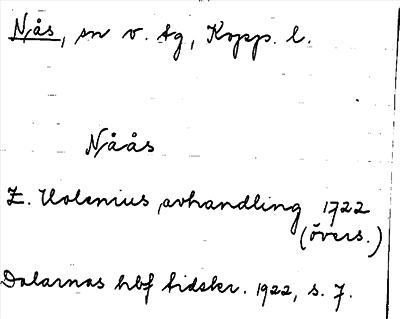 Nås, sn v. tg, Kopp. l.
Nåås
Z. Holenius avhandling 1722
(övers.)
Dalarnas hbf tidskr. 1922, s. 7.